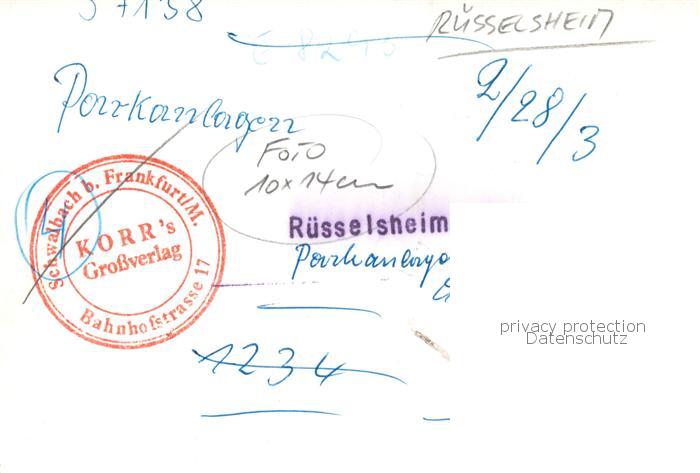 57138
RÜSSELSHEIM
Parkanlagen
2/28/3
FOTO
10x14cm
Schwalbach b. Frankfurt/M.
KORR's
Großverlag
Bahnhofstrasse 17
Rüsselsheim
Parkanlage
privacy protection
Datenschutz
1234